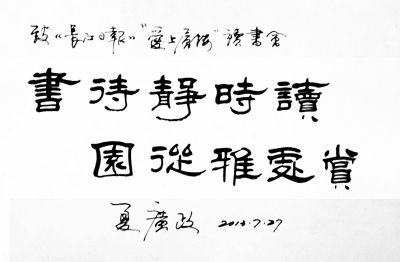 致《長江日報》"愛上層樓"讀書會
書待靜時讀
園從雅處賞
夏廣政 2014.7.27